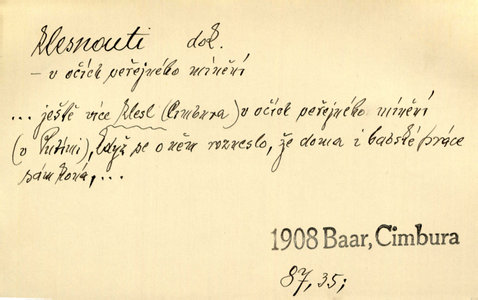 klesnouti dok.
– v očích veřejného mínění
... ještě více klesl (Cimbura) v očích veřejného mínění
(v Putimi), když se o něm rozneslo, že doma i babské práce
sám koná, ...
1908 Baar, Cimbura
87, 35;